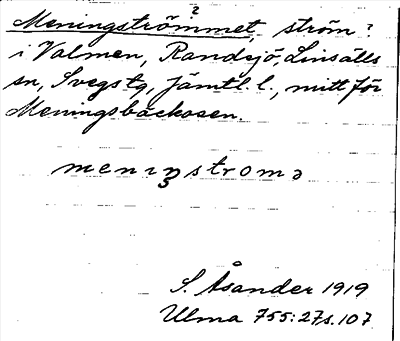 ?
Meningströmmet, ström?
i Valmen, Randsjö, Linsälls
sn, Svegs tg, Jämtl. l., mitt för
Meningsbäckosen.
menıŋstromə
S. Åsander 1919
Ulma 755:27 s. 107